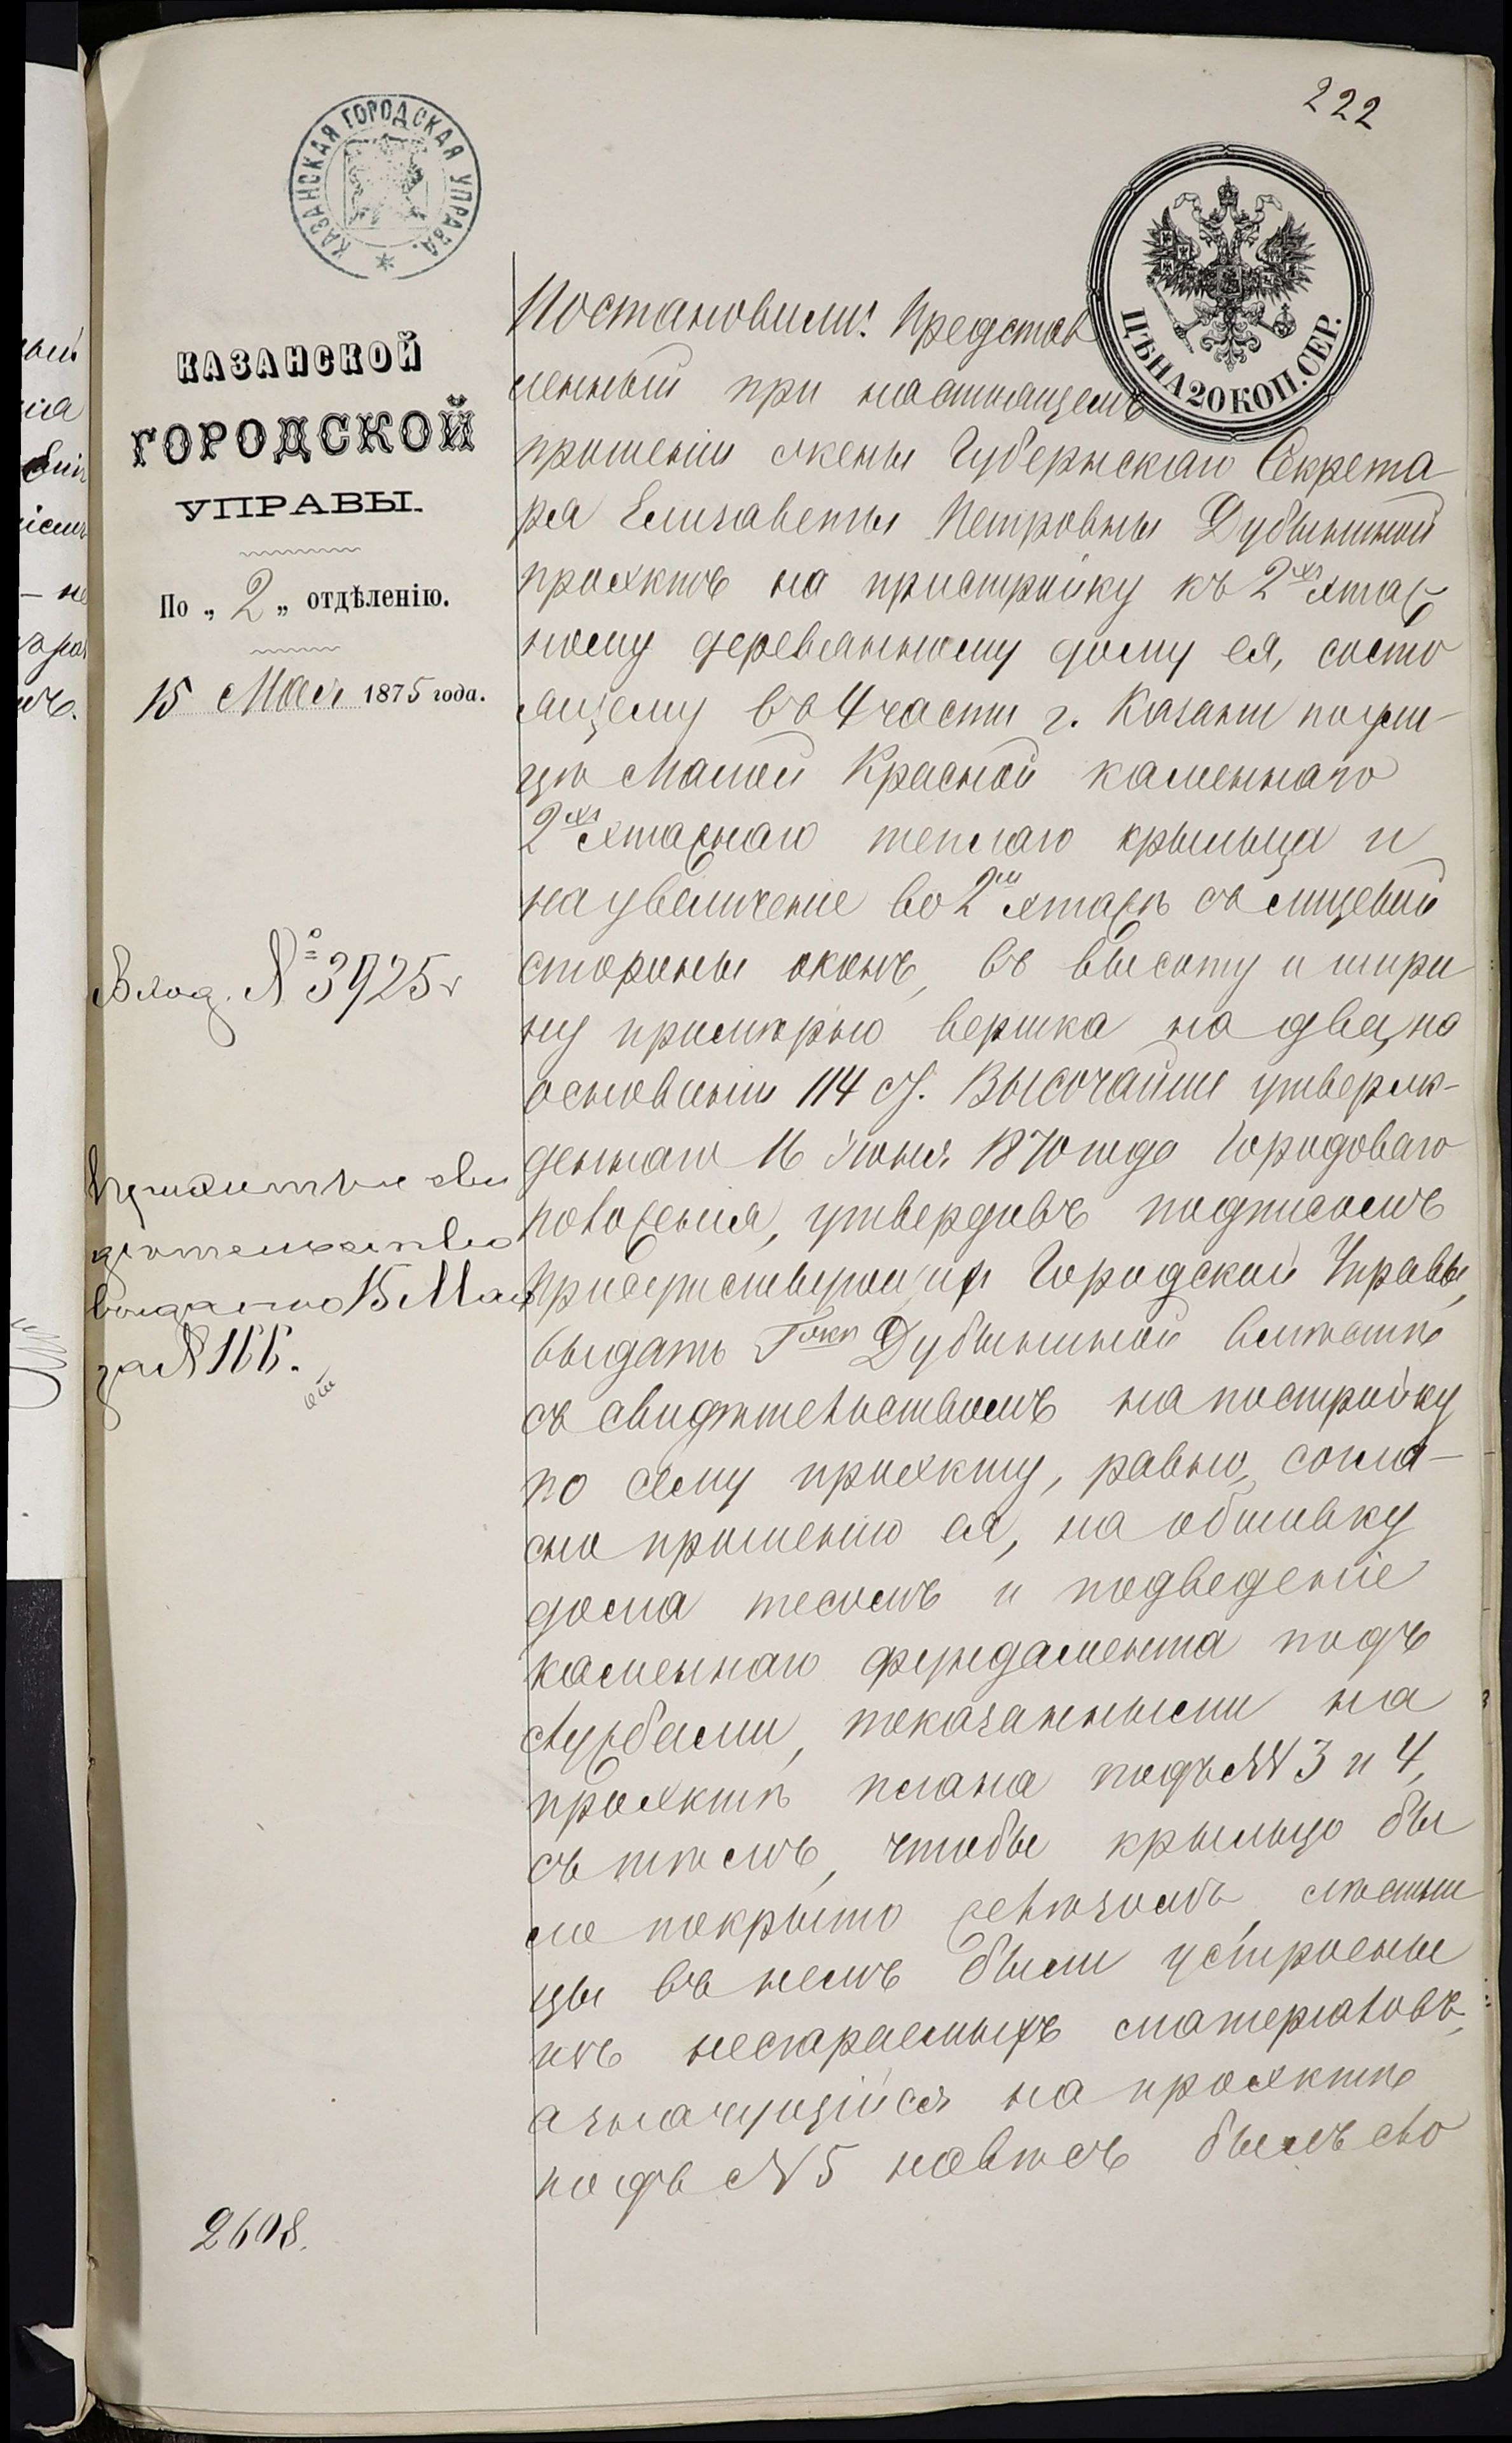 222
КАЗАНСКАЯ ГОРОДСКАЯ УПРАВА.
ЦѢНА 20 КОП. СЕР.
КАЗАНСКОЙ
ГОРОДСКОЙ
УПРАВЫ.
По „ 2 „ отдѣленію.
15 Мая 1875 года.
Вход. № 3925
свидѣтельство
выдано 15 Мая
за № 166.
2608.
Постановили: Представ
ленный при настоящемъ
прошеніи жены Губернскаго Секрета
ря Елизаветы Петровны Дубыниной
проэктъ на пристройку къ 2хъ этаж
ному деревянному дому ея, состо
ящему въ 4 части г. Казани по ули-
цѣ Малой Красной каменнаго
2хъ этажнаго теплаго крыльца и
на увеличеніе во 2мъ этажѣ съ лицевой
стороны оконъ, въ высоту и шири
ну примѣрно вершка на два, на
основаніи 114 ст. Высочайше утверж-
деннаго 16 Іюня 1870 года Городоваго
положенія, утвердивъ подписомъ
присутствующихъ Городской Управы,
выдать Гжѣ Дубыниной вмѣстѣ
съ свидѣтельствомъ на постройку
по сему проэкту, равно, согла-
сно прошенію ея, на обшивку
дома тесомъ и подведеніе
каменнаго фундамента подъ
службами, показанными на
проэктѣ плана подъ №№ 3 и 4,
съ тѣмъ, чтобы крыльцо бы
ло покрыто желѣзомъ, лѣстни
цы въ немъ были устроены
изъ несгараемыхъ матерьяловъ,
а значущійся на проэктѣ
подъ № 5 навѣсъ былъ сло